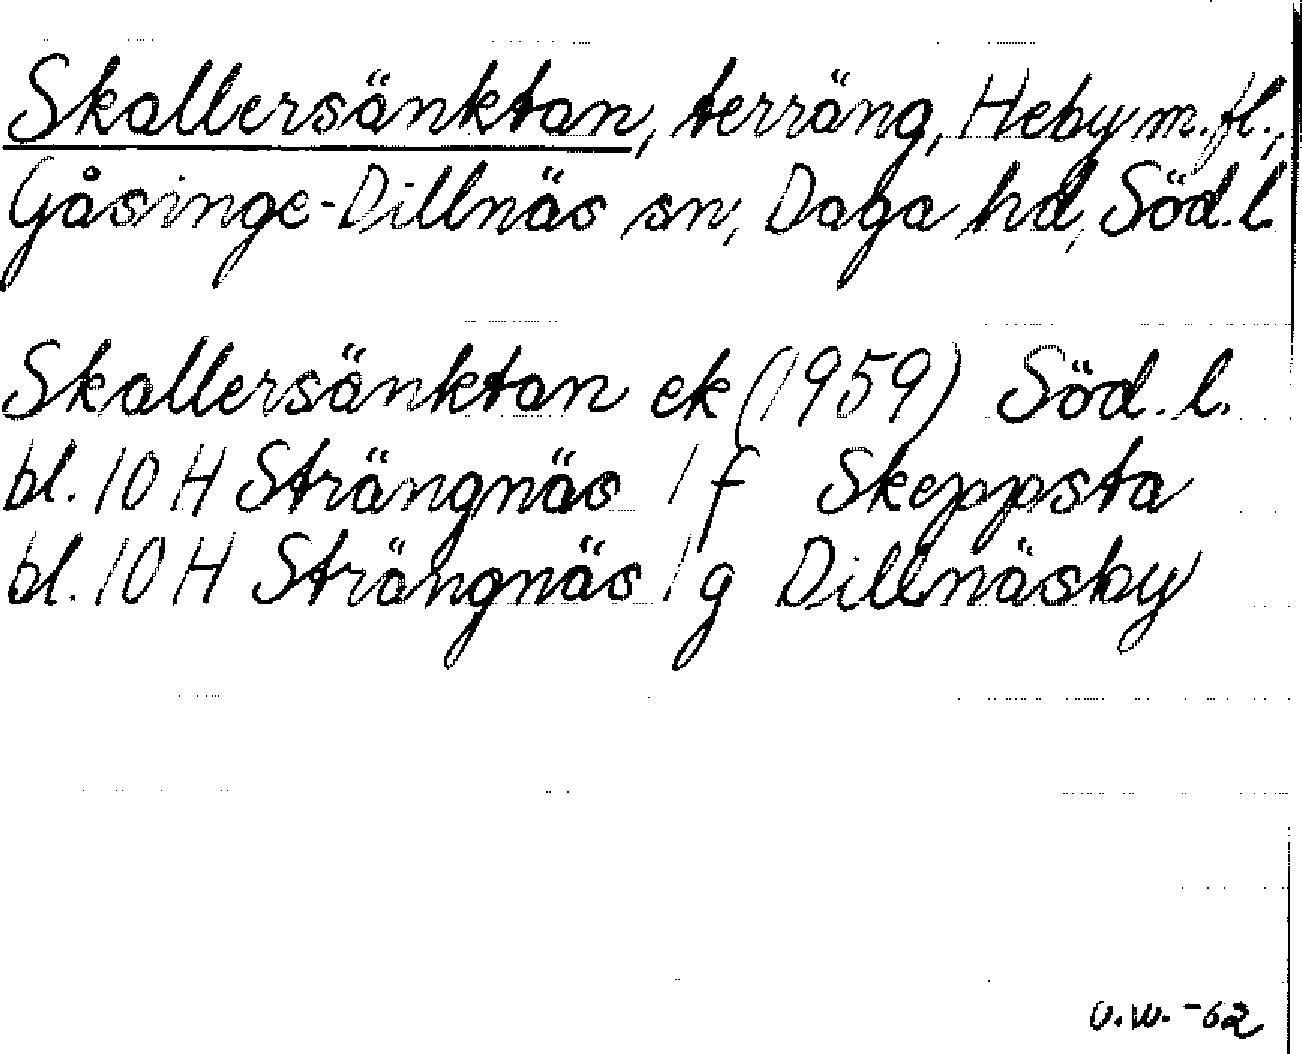 Skallersänktan, terräng, Heby m.fl.,
Gåsinge-Dillnäs sn, Daga hd, Söd.l.
Skallersänktan ek (1959) Söd. l.
bl. 10 H Strängnäs 1 f Skeppsta
bl. 10 H Strängnäs 1 g Dillnäsby
U.W. -62